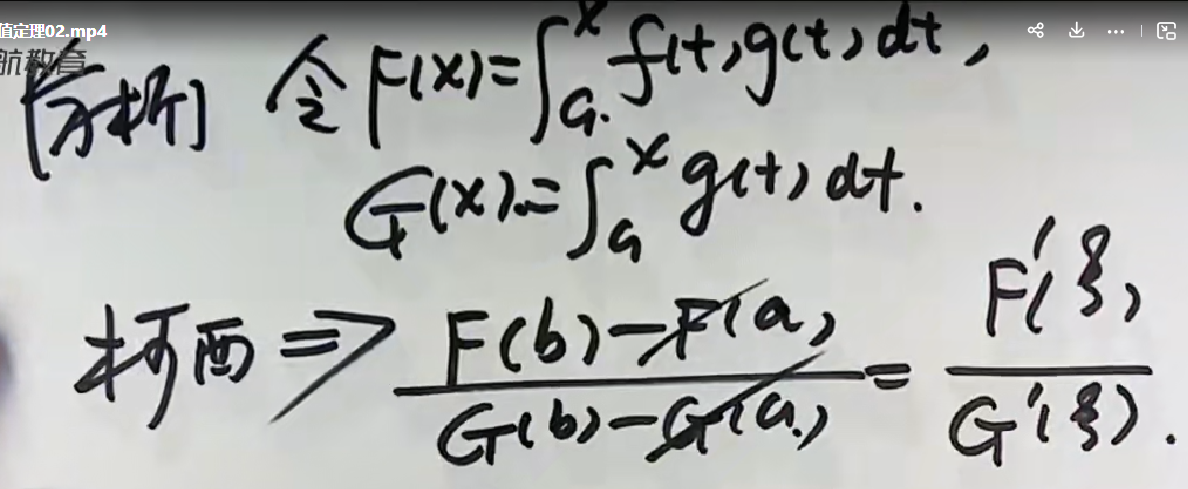 值定理02.mp4
航教育
[分析] 令 F(x)=∫ₐˣ f(t)g(t)dt,
G(x)=∫ₐˣ g(t)dt.
柯西 ⇒ F(b)-F(a) / G(b)-G(a) = F'(ξ) / G'(ξ).